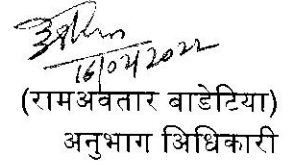 16/02/2022
(रामअवतार बाडेटिया)
अनुभाग अिधिकारी